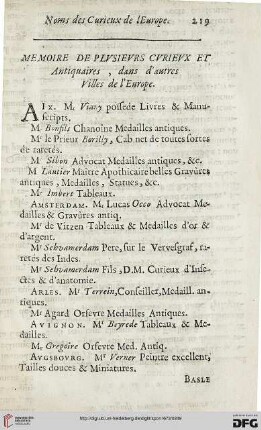 Noms des Curieux de l'Europe. 219
MEMOIRE DE PLVSIEVRS CVRIEVX ET
Antiquaires, dans d'autres
Villes de l'Europe.
AIX. M. Viany possede Livres & Manu-
scripts.
Mr Bonfils Chanoine Medailles antiques.
Mr le Prieur Borilly, Cabinet de toutes sortes
de raretés.
Mr Sibon Advocat Medailles antiques, &c.
M Lautier Maître Apothicaire belles Gravûres
antiques, Medailles, Statues, &c.
Mr Imbert Tableaux.
AMSTERDAM. M. Lucas Occo Advocat Me-
dailles & Gravûres antiq.
Mr de Vitzen Tableaux & Medailles d'or &
d'argent.
Mr Schvamerdam Pere, sur le Vervesgraf, ra-
retés des Indes.
Mr Schvamerdam Fils, D.M. Curieux d'Inse-
ctes & d'anatomie.
ARLES. Mr Terrein, Conseiller, Medaill. an-
tiques.
Mr Agard Orfevre Medailles Antiques.
AVIGNON. Mr Beyrede Tableaux & Me-
dailles.
M. Gregoire Orfevre Med. Antiq.
AVGSBOVRG. Mr Verner Peintre excellent,
Tailles douces & Miniatures.
BASLE
DFG